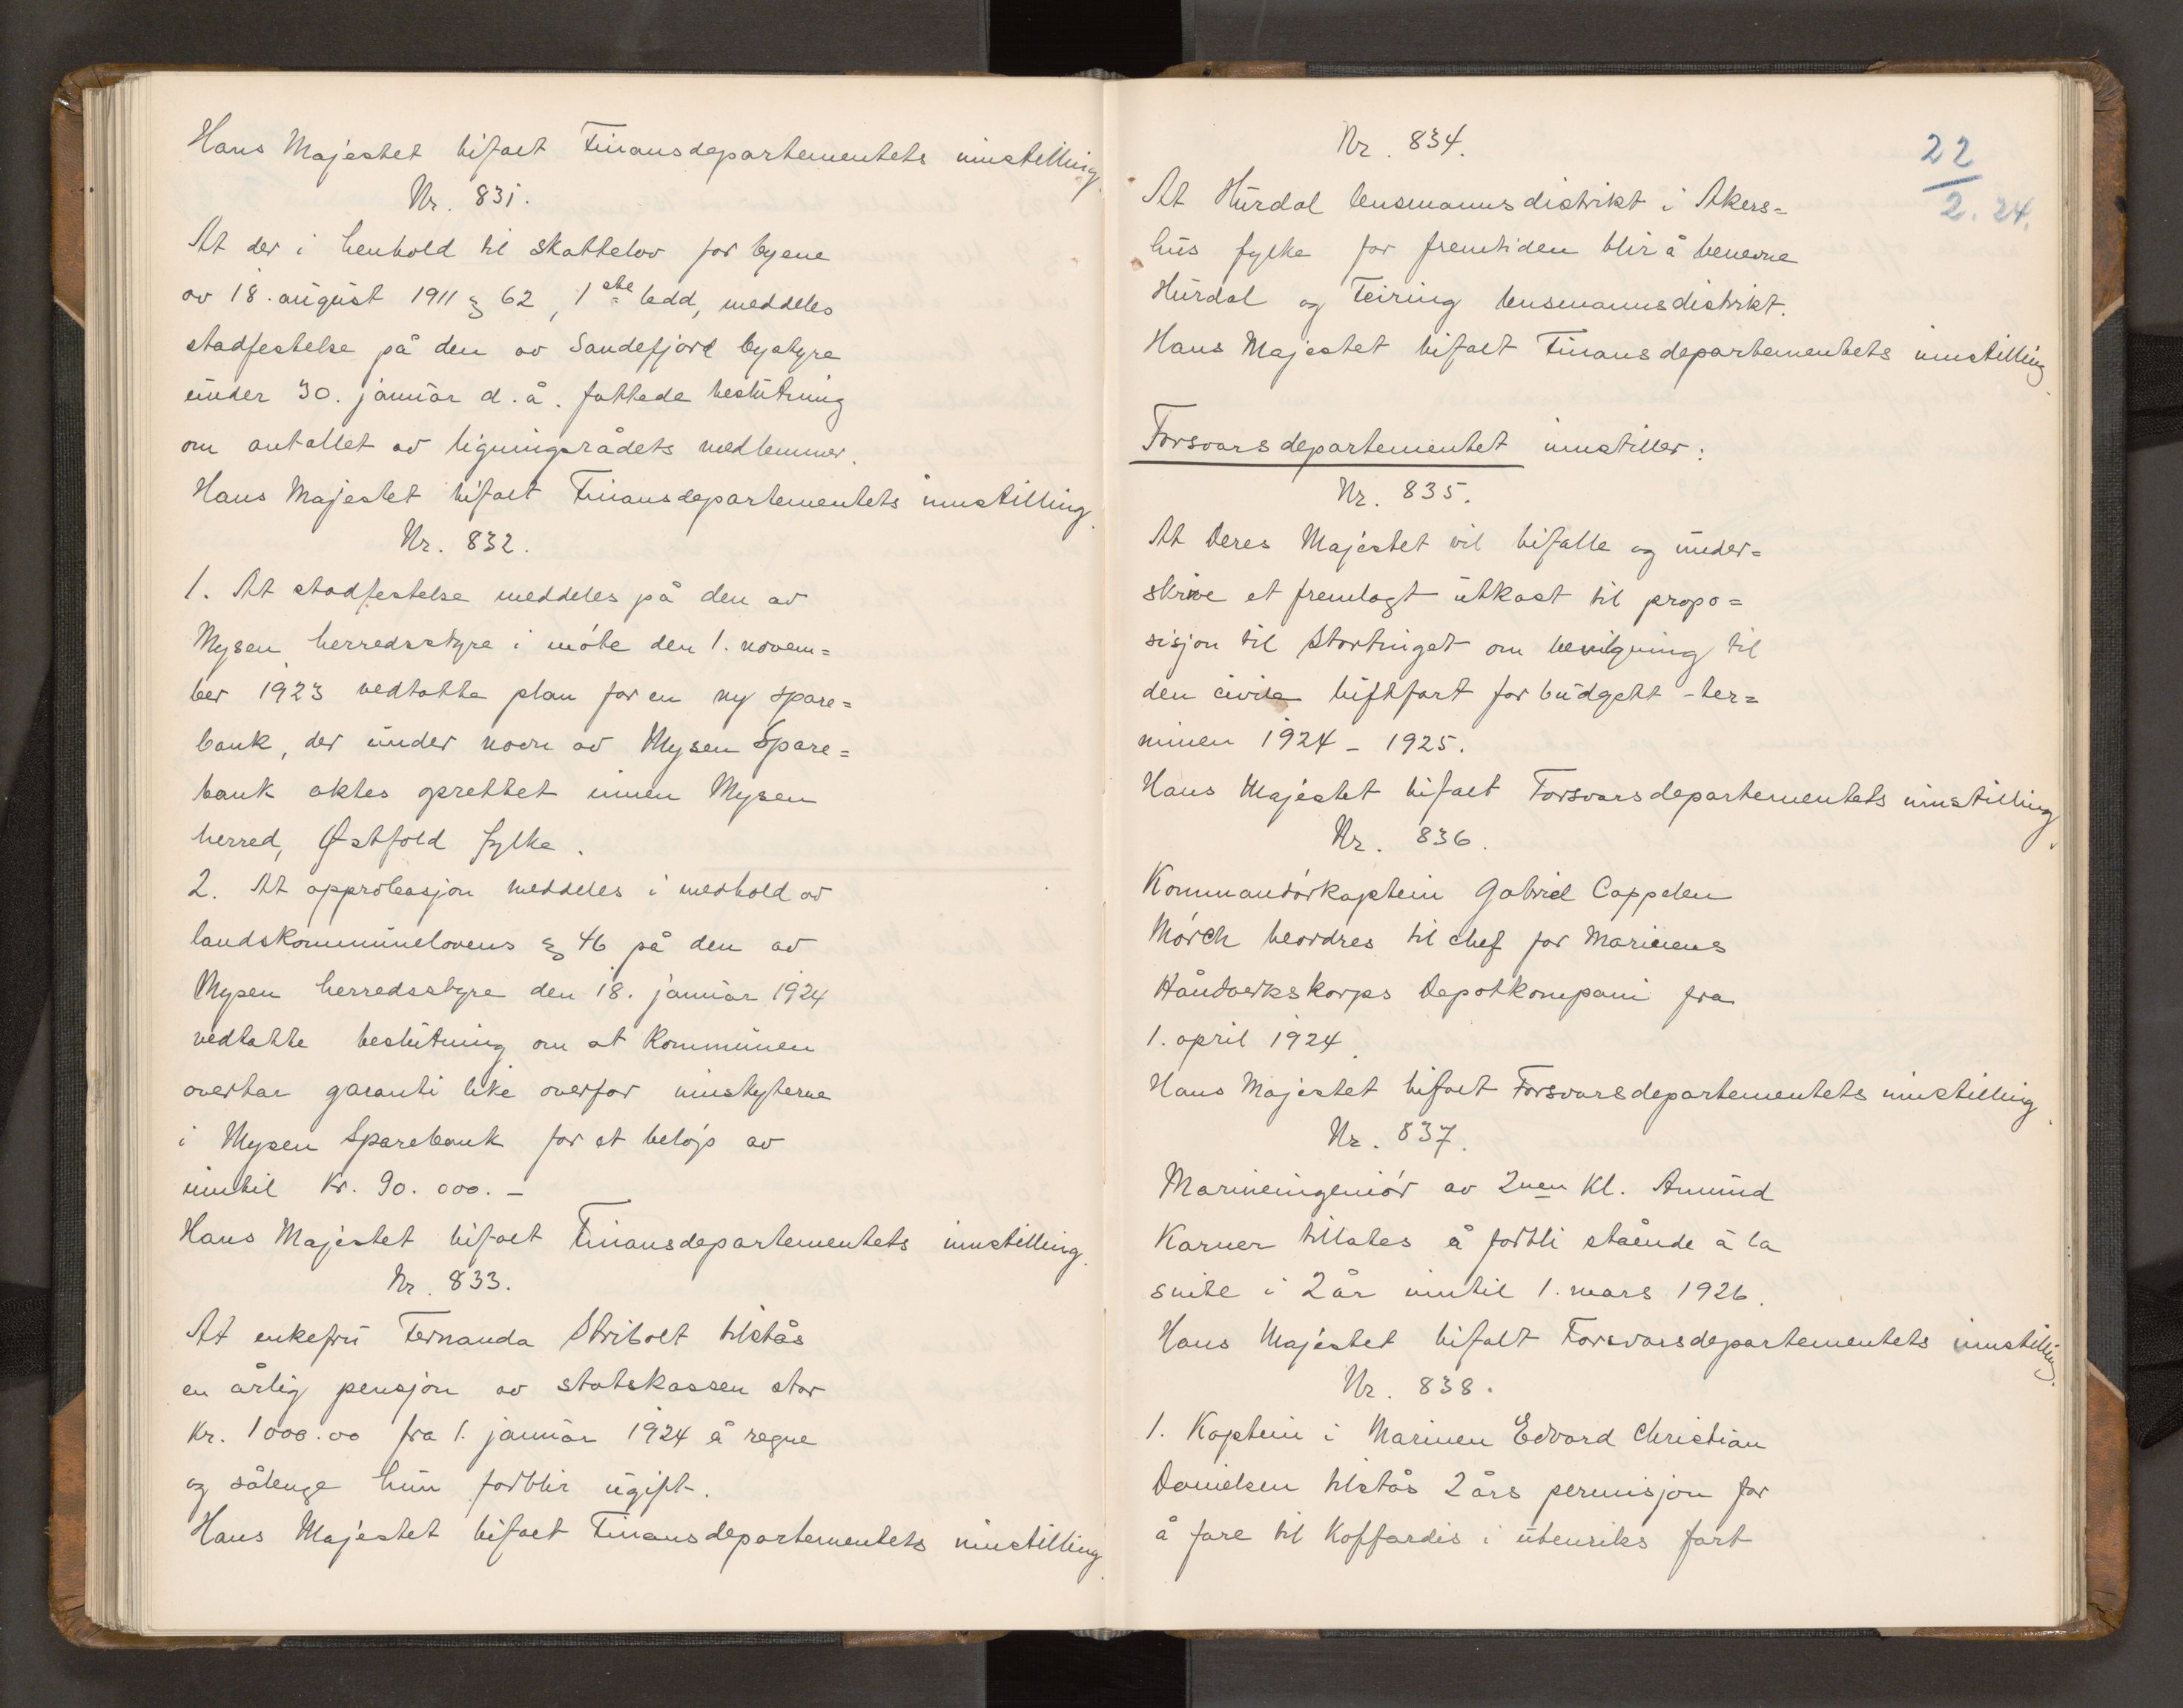 Hans Majestet bifalt Finansdepartementets innstilling.
Nr. 831.
At der i henhold til skattelov for byene
av 18. august 1911 § 62, 1ste ledd, meddeles
stadfestelse på den av Sandefjord bystyre
under 30. januar d. å. fattede beslutning
om antallet av ligningsrådets medlemmer.
Hans Majestet bifalt Finansdepartementets innstilling.
Nr. 832.
1. At stadfestelse meddeles på den av
Mysen herredsstyre i møte den 1. novem=
ber 1923 vedtatte plan for en ny spare=
bank, der under navn av Mysen Spare=
bank aktes oprettet innen Mysen
herred, Østfold fylke.
2. At approbasjon meddeles i medhold av
landskommunelovens § 46 på den av
Mysen herredsstyre den 18. januar 1924
vedtatte beslutning om at kommunen
overtar garanti like overfor innskyterne
i Mysen Sparebank for et beløp av
inntil Kr. 90.000.-
Hans Majestet bifalt Finansdepartementets innstilling.
Nr. 833.
At enkefru Fernanda Stribolt tilstås
en årlig pensjon av statskassen stor
Kr. 1000.00 fra 1. januar 1924 å regne
og sålenge hun forblir ugift.
Hans Majestet bifalt Finansdepartementets innstilling.
22
2. 24.
Nr. 834.
At Hurdal lensmannsdistrikt i Akers=
hus fylke for fremtiden blir å benevne
Hurdal og Feiring lensmannsdistrikt.
Hans Majestet bifalt Finansdepartementets innstilling.
Forsvarsdepartementet innstiller:
Nr. 835.
At Deres Majestet vil bifalle og under=
skrive et fremlagt utkast til propo=
sisjon til Stortinget om bevilgning til
den civile luftfart for budgett-ter=
minen 1924-1925.
Hans Majestet bifalt Forsvarsdepartementets innstilling.
Nr. 836.
Kommandørkaptein Gabriel Cappelen
Mørch beordres til chef for Marinens
Håndverkskorps Depotkompani fra
1. april 1924.
Hans Majestet bifalt Forsvarsdepartementets innstilling.
Nr. 837.
Marineingeniør av 2nen Kl. Amund
Karner tillates å forbli stående à la
suite i 2 år inntil 1. mars 1926.
Hans Majestet bifalt Forsvarsdepartementets innstilling.
Nr. 838.
1. Kaptein i Marinen Edvard Christian
Danielsen tilstås 2 års permisjon for
å fare til Koffardis i utenriks fart